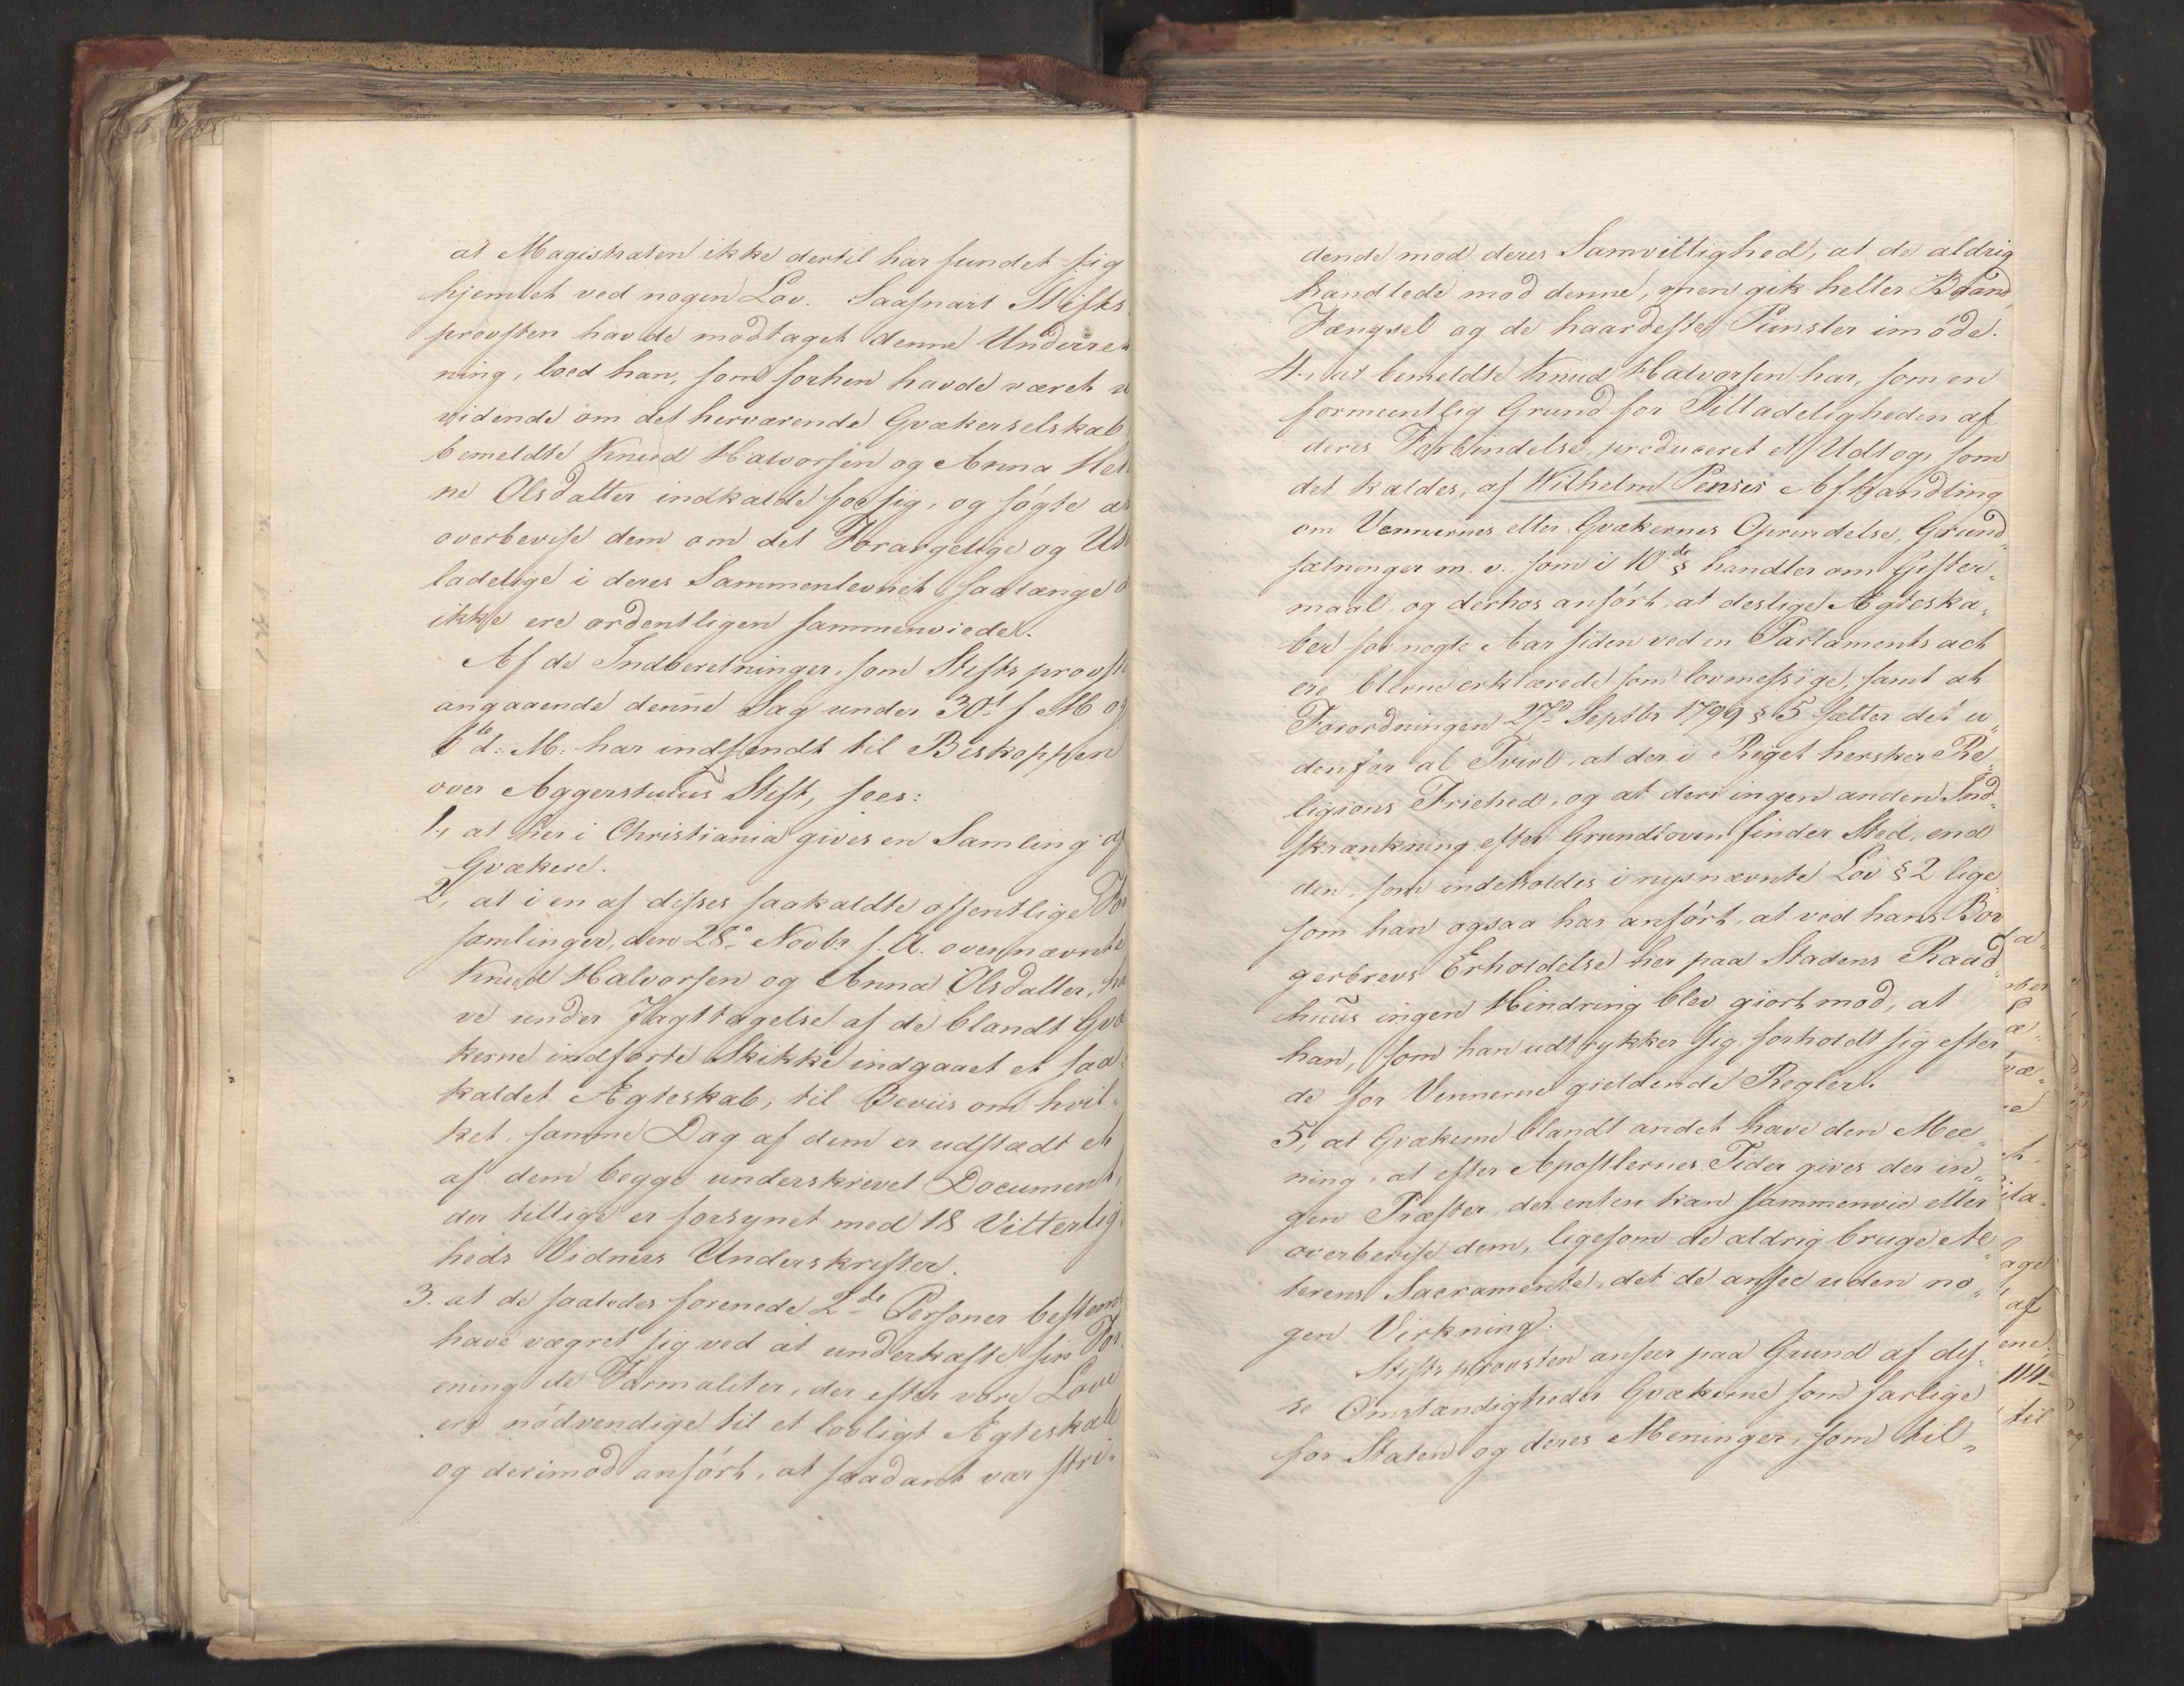 at Magistraten ikke dertil har fundet sig
hjemlet ved nogen Lov. Saasnart Stifts
provsten havde modtaget denne Underret
ning, loed han, som forhen havde været
vidende om det herværende Qvækerselskab
bemeldte Knud Halvorsen og Anna Hele
ne Olsdatter indkalde for sig, og søgte at
overbevise dem om det Forargelige og Util
ladelige i deres Sammenlevnet saalænge
ikke ere ordentligen sammenviede.
Af de Indberetninger, som Stiftsprovst
angaaende denne Sag under 30d f. M og
6te d: M: har indsendt til Biskoppen
over Aggershuus Stift, sees:
1, at her i Christiania gives en Samling af
Qvækere.
2, at i en af disses saakaldte offentlige For
samlinger, den 28de Novbr f. A. overnævnte
Knud Halvorsen og Anna Olsdatter, ha
ve under Jagttagelse af de blandt Qvæ
kerne indførte Skikke indgaaet et saa
kaldet Ægteskab, til Beviis om hvil-
ket, samme Dag af dem er udstædt et
af dem begge underskrevet Document,
der tillige er forsynet med 18 Vitterlig-
heds Vidners Underskrifter.
3. at de saaledes forenede 2de Personer bestemt
have vægret sig ved at underkaste sin For-
ening de Formaliter, der efter vore Love
ere nödvendige til et lovligt Ægteskab
og derimod anfört, at saadant var stri-
dende mod deres Samvittighed, at de aldrig
handlede mod denne, men gik heller Baand,
Fængsel og de haardeste Punsler imöde.
4, at bemeldte Knud Halvorsen har, som en
formeentlig Grund for Tilladeligheden af
deres Forbindelse, produceret et Udtog, som
det kaldes, af Wilhelm Penses Afhandling
om Vennernes eller Qvækernes Oprindelse, Grund-
sætninger m. v. som i 10de § handler om Gifter-
maal, og derhos anfört, at deslige Ægteska-
ber for nogle Aar siden ved en Parlaments act
ere blevne erklærede som lovmessige, samt at
Forordningen 27de Septbr 1799 § 5 sætter det u-
denfor al Tvivl, at der i Riget hersker Re-
ligions Friehed, og at deri ingen anden Ind-
skrænkning efter Grundloven finder Sted, end
den, som indeholdes i nysnævnte Lov § 2 lige-
som han ogsaa har anfört, at ved hans Bor
gerbrevs Erholdelse her paa Stadens Raad-
huus ingen Hindring blev giort mod, at
han, som han udtrykker sig, forholdt sig efter
de for Vennerne gieldende Regler.
5, at Qvækerne blandt andet have den Mee-
ning, at efter Apostlernes Tider gives der in-
gen Præster, der enten kan sammenvie eller
overbevise dem, ligesom de aldrig bruge Al-
terens Sacramente, det de ansee uden no-
gen Virkning.
Stiftsprovsten anseer paa Grund af dis-
se Omstændigheder Qvækerne som farlige
for Staten og deres Meninger, som til-